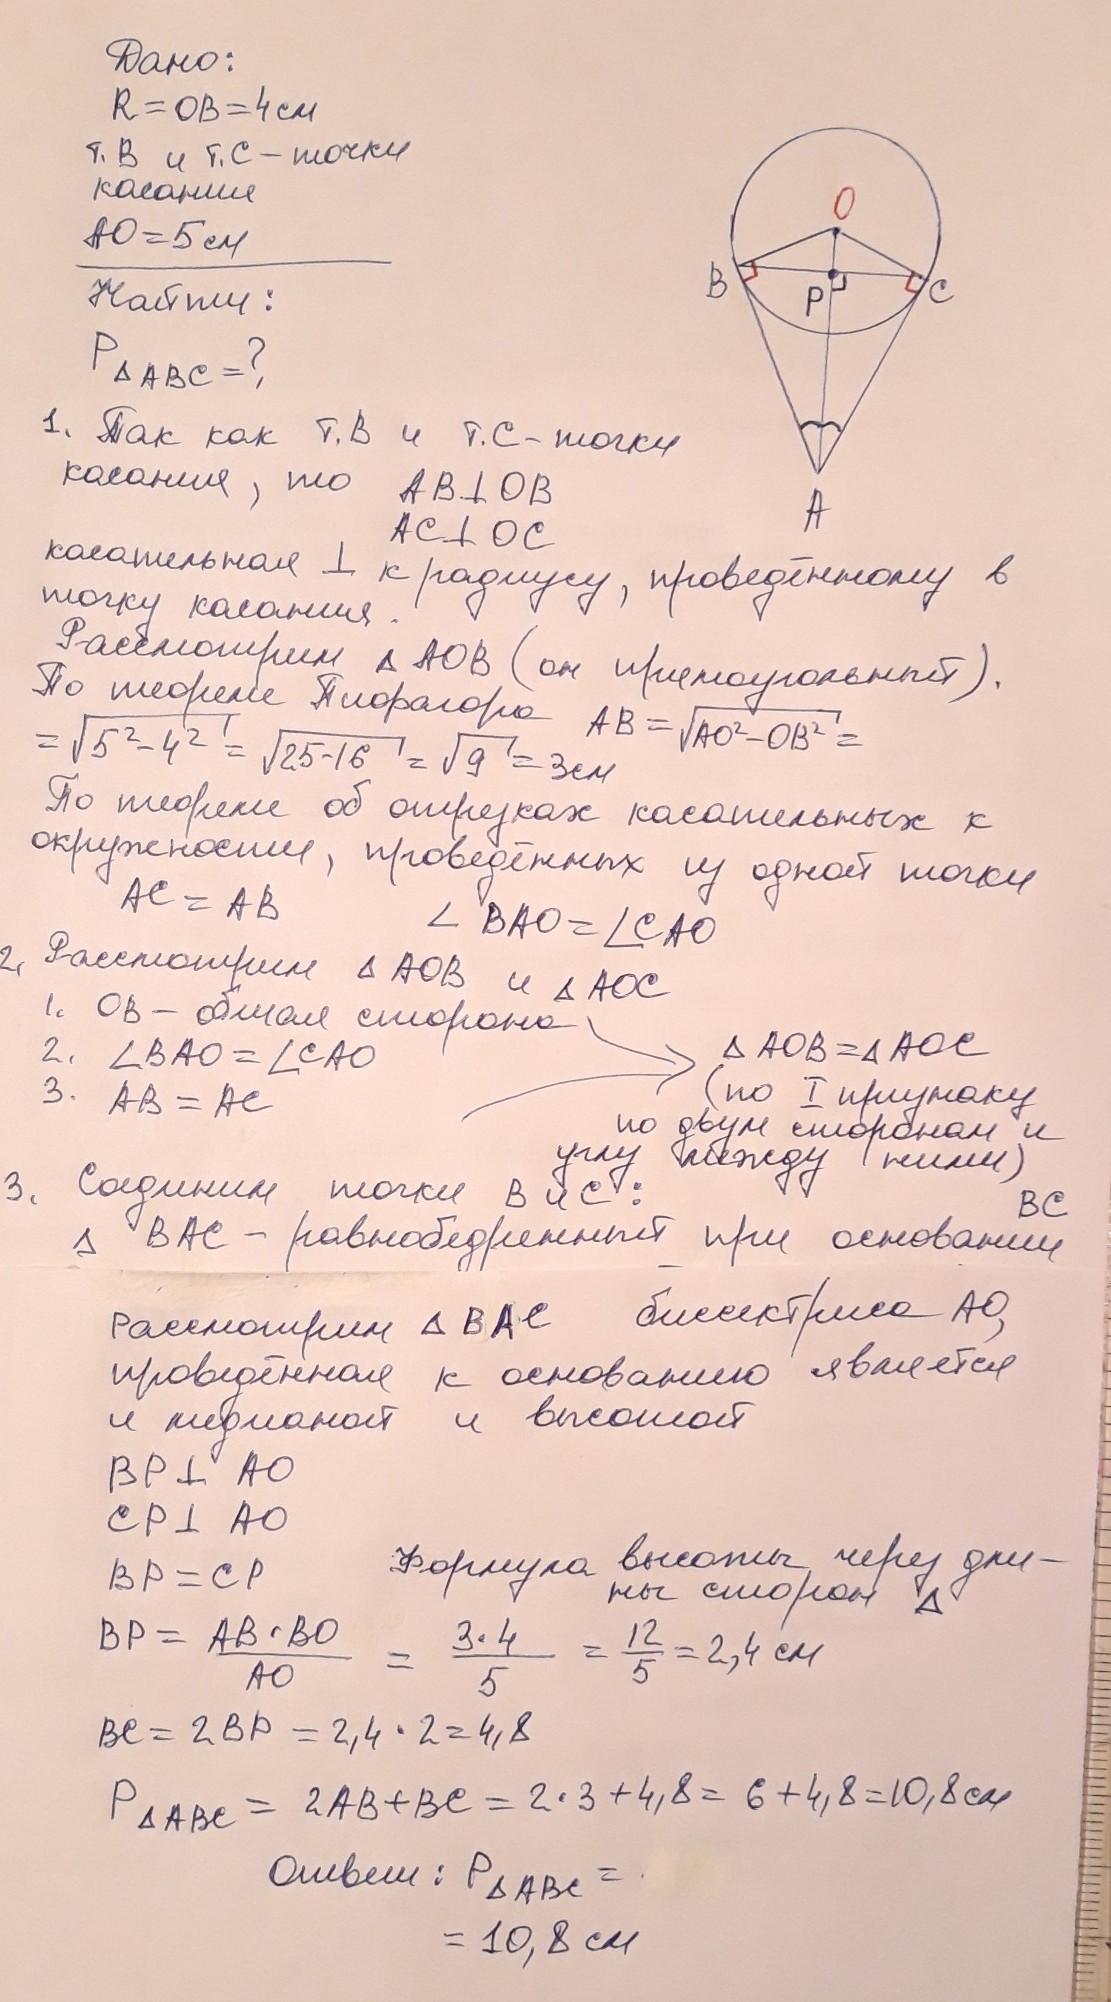 Дано:
R = OB = 4 см
т. В и т. С – точки
касания
АО = 5 см
Найти:
P△ABC = ?
O
B
P
C
A
1. Так как т. В и т. С – точки
касания, то AB ⊥ OB
AC ⊥ OC
касательная ⊥ к радиусу, проведённому в
точку касания.
Рассмотрим △ AOB (он прямоугольный).
По теореме Пифагора AB = √AO² – OB² =
= √5² – 4² = √25 – 16 = √9 = 3 см
По теореме об отрезках касательных к
окружности, проведённых из одной точки
AC = AB ∠ BAO = ∠CAO
2. Рассмотрим △ AOB и △ AOC
1. OB – общая сторона
2. ∠BAO = ∠CAO
3. AB = AC
△ AOB = △ AOC
(по I признаку
по двум сторонам и
углу между ними)
3. Соединим точки В и С:
△ BAC – равнобедренный при основании BC
Рассмотрим △ BAC биссектриса AO,
проведённая к основанию является
и медианой и высотой
BP ⊥ AO
CP ⊥ AO
BP = CP Формула высоты через дли–
ны сторон △
BP = AB · BO / AO = 3 · 4 / 5 = 12 / 5 = 2,4 см
BC = 2BP = 2,4 · 2 = 4,8
P△ABC = 2AB + BC = 2 · 3 + 4,8 = 6 + 4,8 = 10,8 см
Ответ: P△ABC =
= 10,8 см